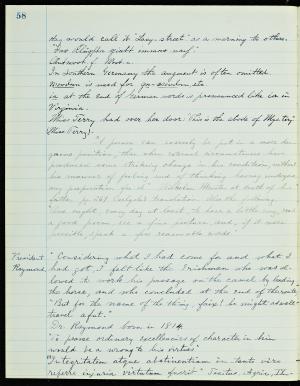 58
they would call it "Lazy street" as a warning to others.
In Southern Germany the augment is often omitted.
is used for
or at the end of German words is pronounced like on in
Virginia.
Miss Terry had over her door: This is the abode of Mystery
Miss Terry!
"A person can scarcely be put in a more dan-
gerous position, than when external circumstances have
produced some striking change in his condition, without
his manner of feeling and of thinking having undergone
any preparation for it." Wilhelm Meister at
father, Carlyle's translation. Also the following
"One ought, every day at least, to hear a little song, read
a good poem, see a fine picture, and, if it were
possible, speak a few reasonable words."
President
Raymond.
"Considering what I had come for and what I
had got, I felt like the Irishman who was al-
lowed to work his passage on the canal by leading
the horse, and who concluded at the end of the route
"But for the name of the thing, faix! he might as well
travel afut."
Dr. Raymond born in 1814
"To praise ordinary excellences of character in him
would be a wrong to his virtues."
"Integritatem atque abstinentiam in tanto viro
referre injuria virtutum fuerit" Tacitus, Agric.